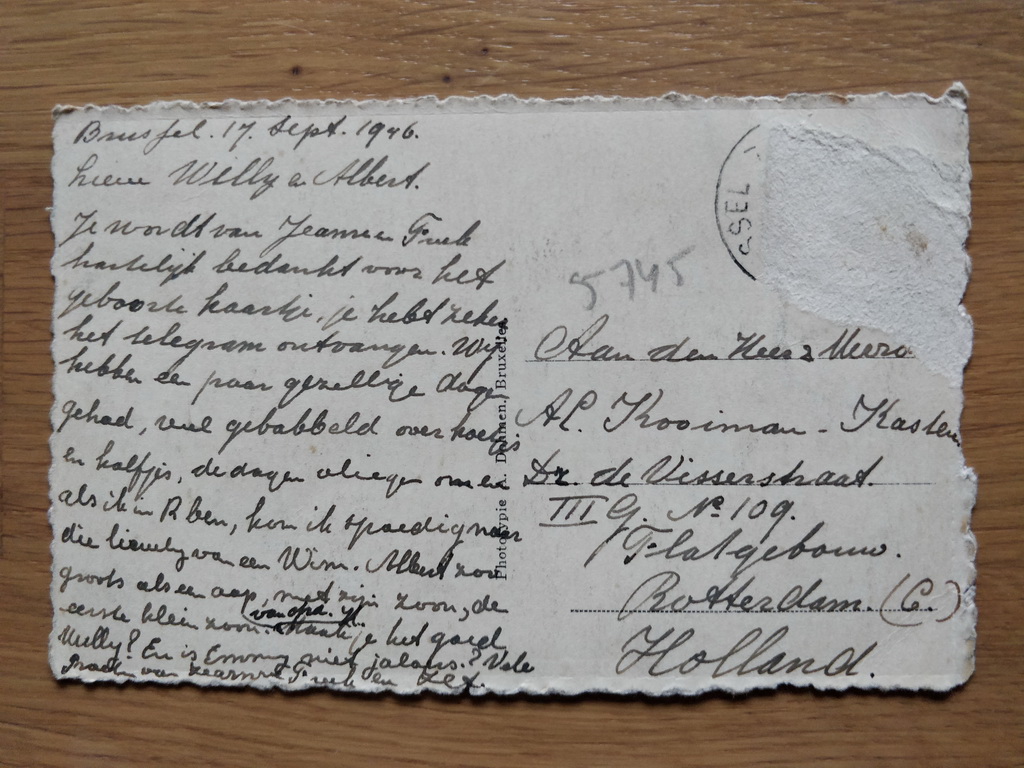 Brussel. 17. Sept. 1946.
Lieve Willy en Albert.
Je wordt van Jeanne en Freek
hartelijk bedankt voor het
geboorte kaartje, je hebt zeker
het telegram ontvangen. Wij
hebben een paar gezellige dagen
gehad, veel gebabbeld over koetjes
en kalfjes, de dagen vliegen om en
als ik in R ben, kom ik spoedig naar
die van een Wim. Albert zoo
groots als een aap, met zijn zoon, de
eerste klein zoon. van opa. Maak je het goed
Willy? En is Emmy niet jaloers? Vele
van Jeanne Freek en
SSEL
5745
Aan den Heer & Mevro
Al. Kooiman - Kasten
Dr. de Visserstraat.
III G. No 109.
Flatgebouw.
Rotterdam. (C.)
Holland.
Phototypie A. Dohmen, Bruxelles